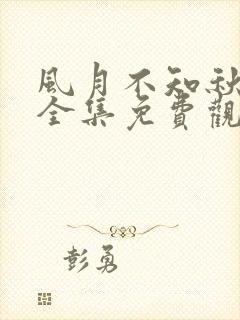 風月不知秋
全集免費觀
彭勇